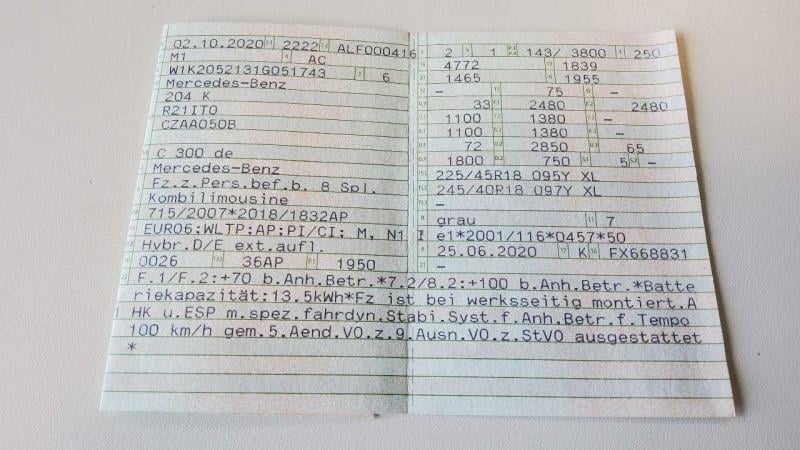 02.10.2020 2222 ALF000416
M1 AC
W1K2052131G051743 6
Mercedes-Benz
204 K
R21IT0
CZAA050B
C 300 de
Mercedes-Benz
Fz.z.Pers.bef.b. 8 Spl.
Kombilimousine
715/2007*2018/1832AP
EURO6;WLTP;AP;PI/CI; M, N1 I
Hybr.D/E ext.aufl.
0026 36AP 1950
2 1 143/ 3800 250
4772 1839
1465 1955
– 75 –
33 2480 2480
1100 1380 –
1100 1380 –
72 2850 65
1800 750 5 –
225/45R18 095Y XL
245/40R18 097Y XL
–
grau 7
e1*2001/116*0457*50
25.06.2020 K FX668831
–
F.1/F.2:+70 b.Anh.Betr.*7.2/8.2:+100 b.Anh.Betr.*Batte
riekapazität:13.5kWh*Fz ist bei werksseitig montiert.A
HK u.ESP m.spez.fahrdyn.Stabi.Syst.f.Anh.Betr.f.Tempo
100 km/h gem.5.Aend.VO.z.9.Ausn.VO.z.StVO ausgestattet
*